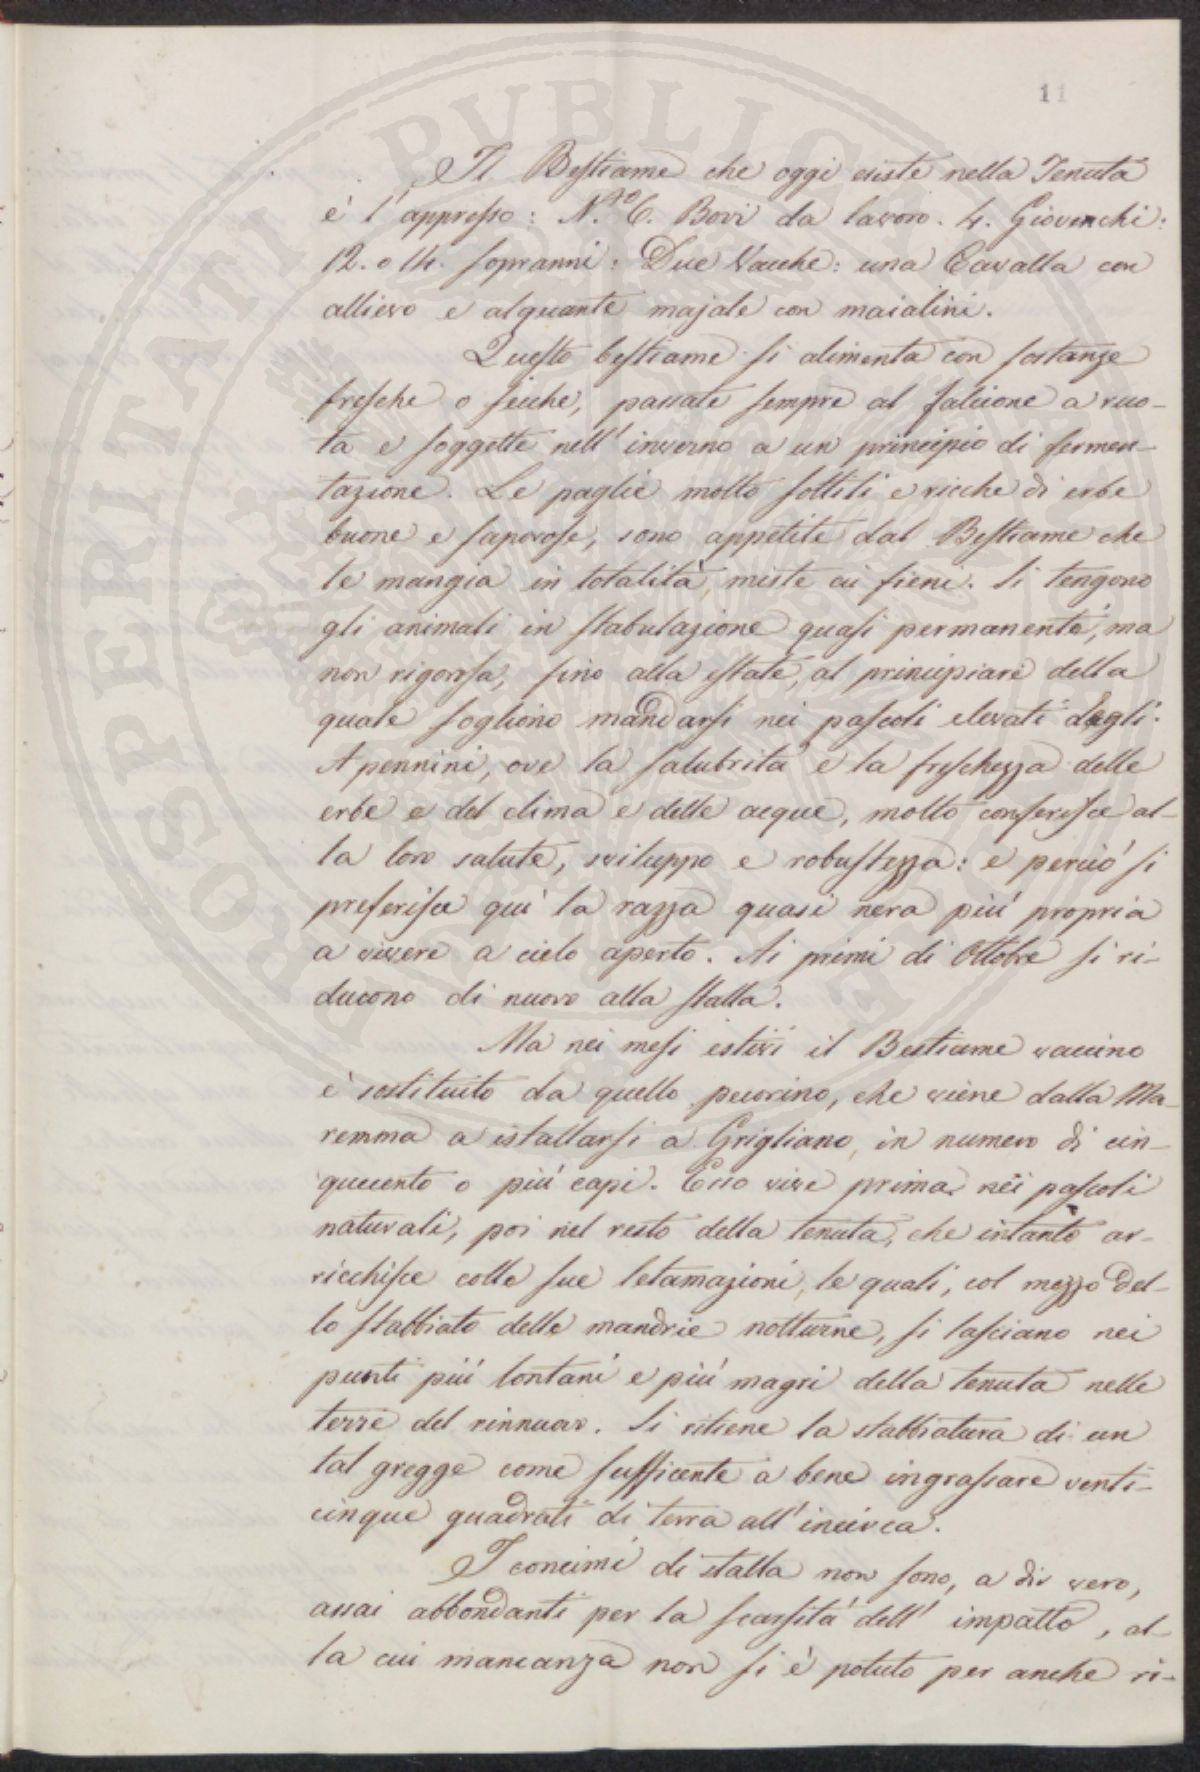 11
Il Bestiame che oggi esiste nella Tenuta
è l'appresso: N.ro 6. Bovi da lavoro. 4. Giovenchi:
12. o 14. sopranni: Due Vacche: una Cavalla con
allievo e alquante majale con maialini.
Questo bestiame si alimenta con sostanze
fresche o secche, passate sempre al falcione a ruo-
ta e soggette nell'inverno a un principio di fermen-
tazione. Le paglie molto sottili e ricche di erbe
buone e saporose, sono appetite dal Bestiame che
le mangia in totalità, miste ai fieni. Si tengono
gli animali in stabulazione quasi permanente, ma
non rigorosa, sino alla estate, al principiare della
quale sogliono mandarsi nei pascoli elevati degli
Apennini, ove la salubrità e la freschezza delle
erbe e del clima e delle acque, molto conferisce al-
la loro salute, sviluppo e robustezza: e perciò si
preferisce quì la razza quasi nera più propria
a vivere a cielo aperto. Ai primi di Ottobre si ri-
ducono di nuovo alla stalla.
Ma nei mesi estivi il Bestiame vaccino
è sostituito da quello pecorino, che viene dalla Ma-
remma a istallarsi a Grigliano, in numero di cin-
quecento o più capi. Esso vive prima nei pascoli
naturali, poi nel resto della tenuta, che intanto ar-
ricchisce colle sue letamazioni, le quali, col mezzo del-
lo stabbiato delle mandrie notturne, si lasciano nei
punti più lontani e più magri della tenuta nelle
terre del rinnuovo. Si ritiene la stabbiatura di un
tal gregge come sufficente a bene ingrassare venti-
cinque quadrati di terra all'incirca.
I concimi di stalla non sono, a dir vero,
assai abbondanti per la scarsità dell'impatto, al-
la cui mancanza non si è potuto per anche ri-
PROSPERITATI PUBLICAE